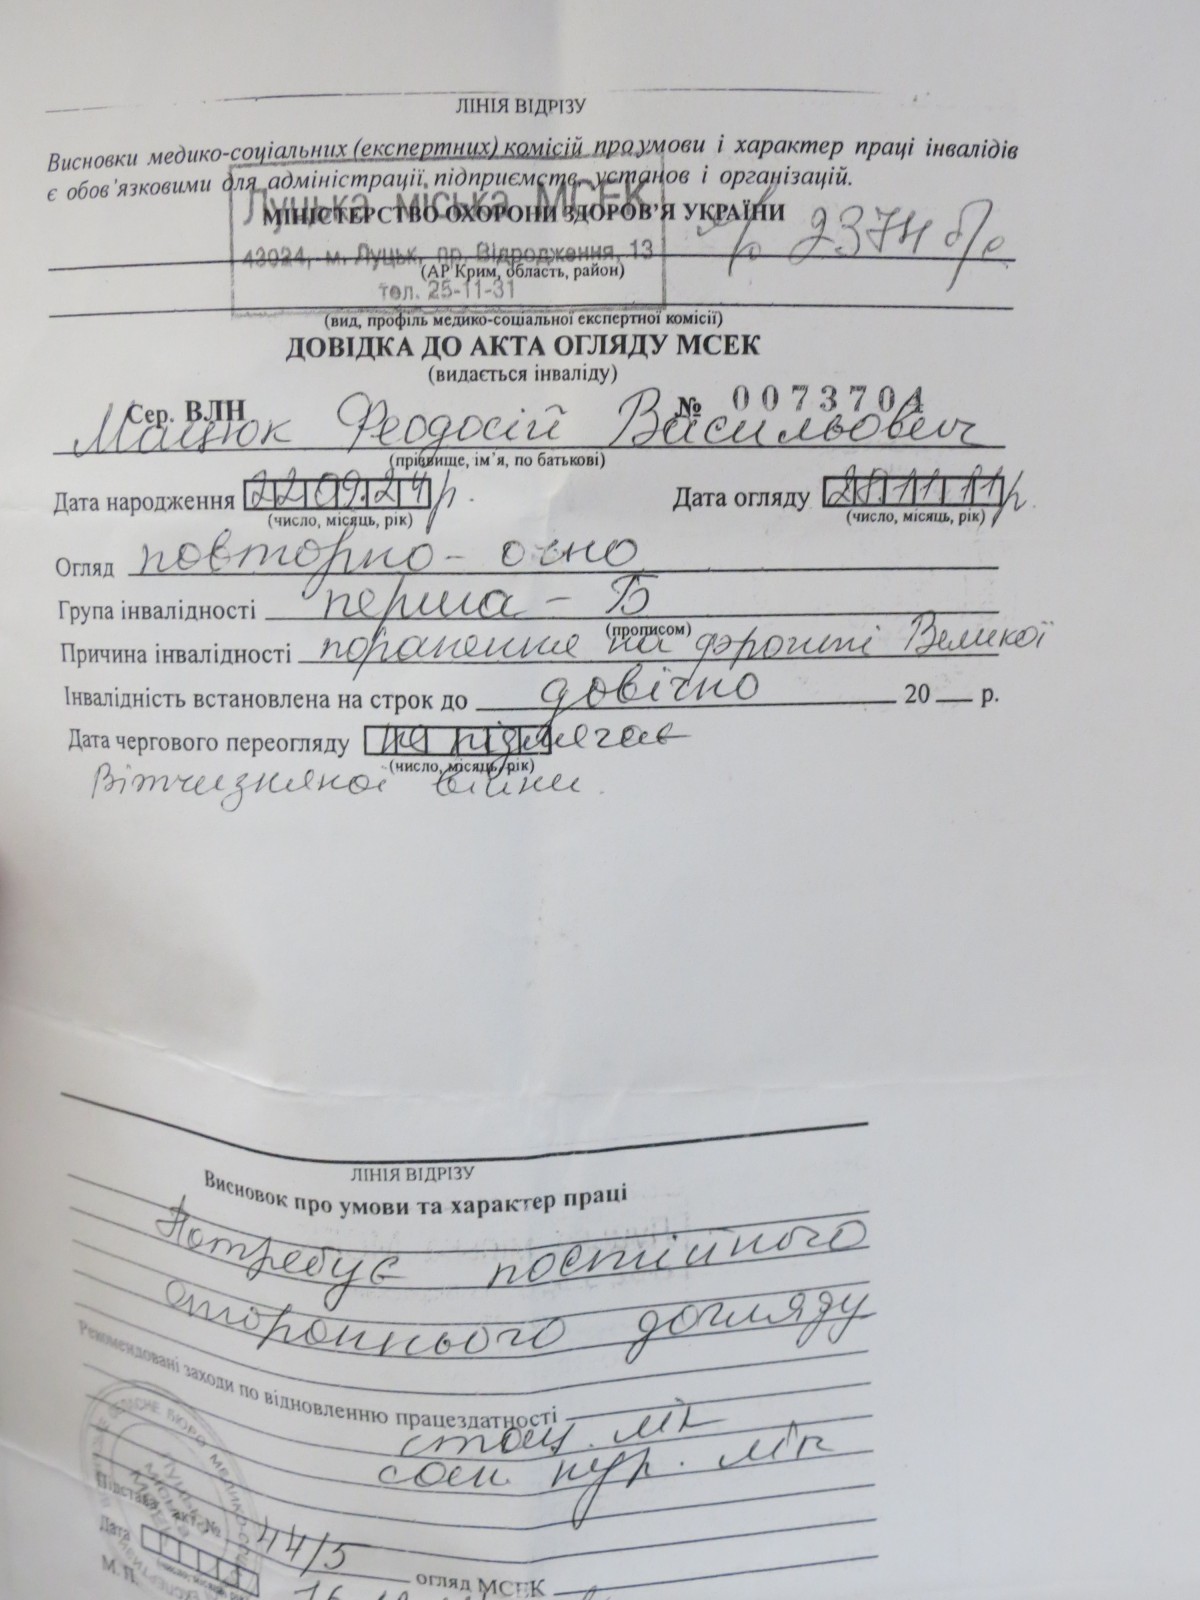 ЛІНІЯ ВІДРІЗУ
Висновки медико-соціальних (експертних) комісій про умови і характер праці інвалідів
є обов'язковими для адміністрації, підприємств, установ і організацій.
Луцька міська МСЕК
МІНІСТЕРСТВО ОХОРОНИ ЗДОРОВ'Я УКРАЇНИ
2374
43024, м. Луцьк, пр. Відродження, 13
(АР Крим, область, район)
тел. 25-11-31
(вид, профіль медико-соціальної експертної комісії)
ДОВІДКА ДО АКТА ОГЛЯДУ МСЕК
(видається інваліду)
Сер. ВЛН № 0073704
Мацюк Феодосій Васильович
(прізвище, ім'я, по батькові)
Дата народження 22.09.24 р. Дата огляду 11.11 р.
(число, місяць, рік) (число, місяць, рік)
Огляд повторно - очно
Група інвалідності перша - Б
(прописом)
Причина інвалідності поранення на фронті Великої
Інвалідність встановлена на строк до довічно 20 р.
Дата чергового переогляду не підлягає
(число, місяць, рік)
Вітчизняної війни.
ЛІНІЯ ВІДРІЗУ
Висновок про умови та характер праці
Потребує постійного
стороннього догляду
Рекомендовані заходи по відновленню працездатності
стац. лік
сан. кур. лік
Підстава: акт № 44/5
Дата огляд МСЕК
М. П.